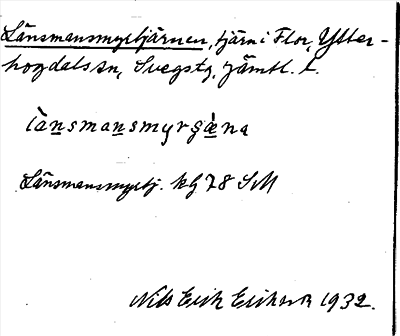 Länsmansmyrtjärnen, tjärn i Flor, Ytter-
hogdals sn, Svegs tg, Jämtl. l.
länsmansmyrgæna
Länsmansmyrtj. kg 78 SM
Nils Erik Erikson 1932.